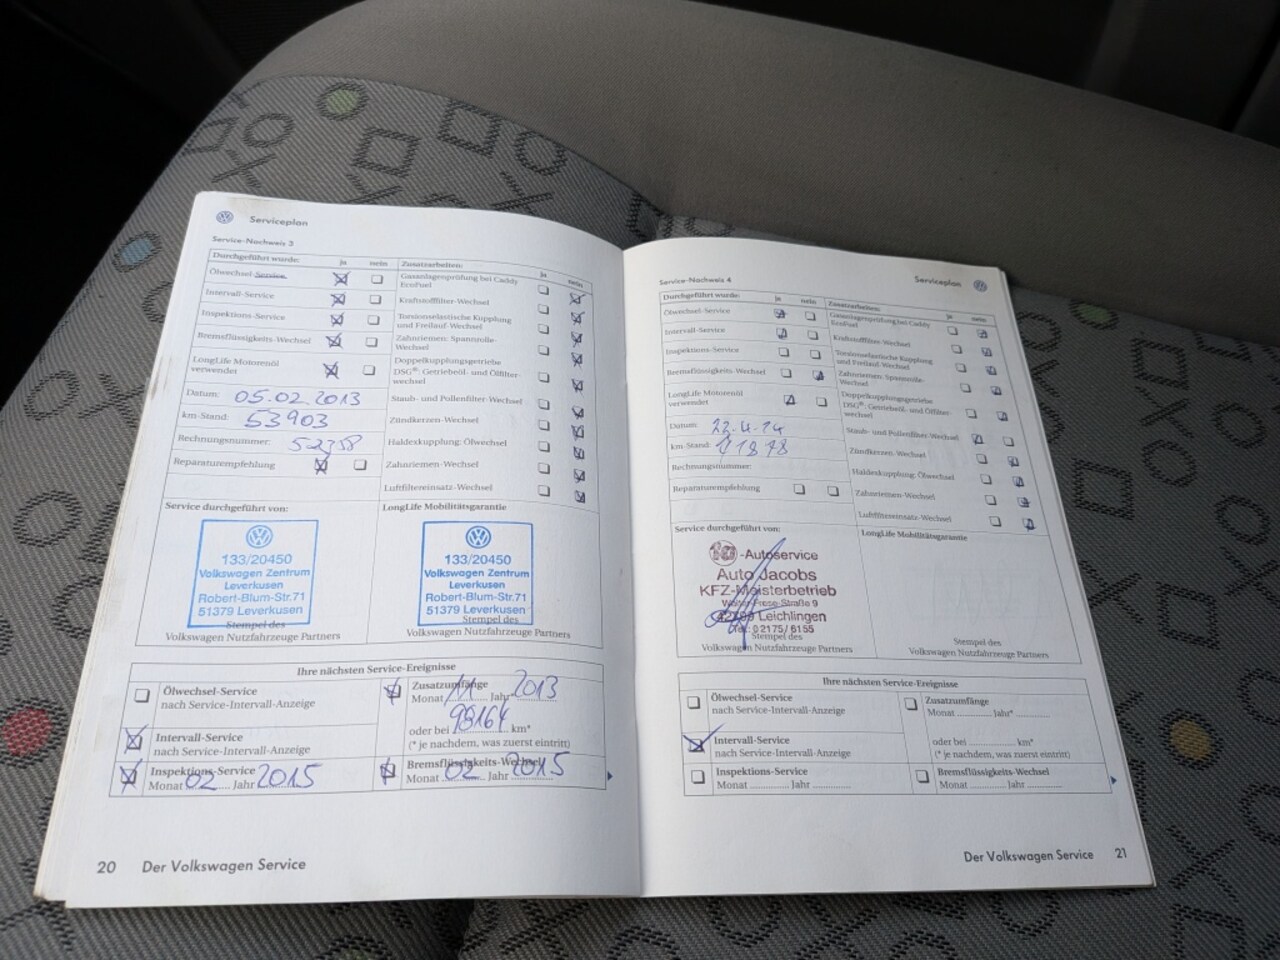 Serviceplan
Service-Nachweis 3
Durchgeführt wurde: ja nein
Ölwechsel-Service
Intervall-Service
Inspektions-Service
Bremsflüssigkeits-Wechsel
LongLife Motorenöl
verwendet
Datum: 05.02.2013
km-Stand: 53903
Rechnungsnummer: 52758
Reparaturempfehlung
Zusatzarbeiten: ja nein
Gasanlagenprüfung bei Caddy
EcoFuel
Kraftstofffilter-Wechsel
Torsionselastische Kupplung
und Freilauf-Wechsel
Zahnriemen- Spannrolle-
Wechsel
Doppelkupplungsgetriebe
DSG®: Getriebeöl- und Ölfilter-
wechsel
Staub- und Pollenfilter-Wechsel
Zündkerzen-Wechsel
Haldexkupplung: Ölwechsel
Zahnriemen-Wechsel
Luftfiltereinsatz-Wechsel
Service durchgeführt von:
133/20450
Volkswagen Zentrum
Leverkusen
Robert-Blum-Str.71
51379 Leverkusen
Stempel des
Volkswagen Nutzfahrzeuge Partners
LongLife Mobilitätsgarantie
133/20450
Volkswagen Zentrum
Leverkusen
Robert-Blum-Str.71
51379 Leverkusen
Stempel des
Volkswagen Nutzfahrzeuge Partners
Ihre nächsten Service-Ereignisse
Ölwechsel-Service
nach Service-Intervall-Anzeige
Intervall-Service
nach Service-Intervall-Anzeige
Inspektions-Service
Monat 02 Jahr 2015
Zusatzumfänge
Monat 11 Jahr 2013
oder bei 98164 km*
(* je nachdem, was zuerst eintritt)
Bremsflüssigkeits-Wechsel
Monat 02 Jahr 2015
20 Der Volkswagen Service
Serviceplan
Service-Nachweis 4
Durchgeführt wurde: ja nein
Ölwechsel-Service
Intervall-Service
Inspektions-Service
Bremsflüssigkeits-Wechsel
LongLife Motorenöl
verwendet
Datum: 22.4.14
km-Stand: 71878
Rechnungsnummer:
Reparaturempfehlung
Zusatzarbeiten: ja nein
Gasanlagenprüfung bei Caddy
EcoFuel
Kraftstofffilter-Wechsel
Torsionselastische Kupplung
und Freilauf-Wechsel
Zahnriemen- Spannrolle-
Wechsel
Doppelkupplungsgetriebe
DSG®: Getriebeöl- und Ölfilter-
wechsel
Staub- und Pollenfilter-Wechsel
Zündkerzen-Wechsel
Haldexkupplung: Ölwechsel
Zahnriemen-Wechsel
Luftfiltereinsatz-Wechsel
Service durchgeführt von:
1a -Autoservice
Auto Jacobs
KFZ-Meisterbetrieb
Straße 9
Leichlingen
Tel.: 02175/6155
Stempel des
Volkswagen Nutzfahrzeuge Partners
LongLife Mobilitätsgarantie
Stempel des
Volkswagen Nutzfahrzeuge Partners
Ihre nächsten Service-Ereignisse
Ölwechsel-Service
nach Service-Intervall-Anzeige
Intervall-Service
nach Service-Intervall-Anzeige
Inspektions-Service
Monat .............. Jahr ..............
Zusatzumfänge
Monat ............ Jahr* ............
oder bei .............. km*
(* je nachdem, was zuerst eintritt)
Bremsflüssigkeits-Wechsel
Monat ............ Jahr ............
Der Volkswagen Service 21